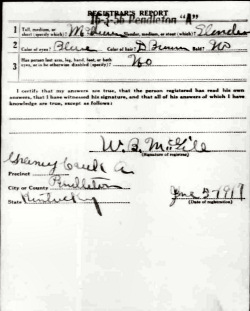 REGISTRAR'S REPORT
16-3-56 Pendleton "A"
1 Tall, medium, or short (specify which)? Medium Slender, medium, or stout (which)? Slender
2 Color of eyes? Blue Color of hair? D Brown Bald? No
3 Has person lost arm, leg, hand, foot, or both eyes, or is he otherwise disabled (specify)? No
I certify that my answers are true, that the person registered has read his own answers, that I have witnessed his signature, and that all of his answers of which I have knowledge are true, except as follows:
W. B. McGill
(Signature of registrar)
Precinct A
City or County Pendleton
State Kentucky
June 5-1917
(Date of registration)